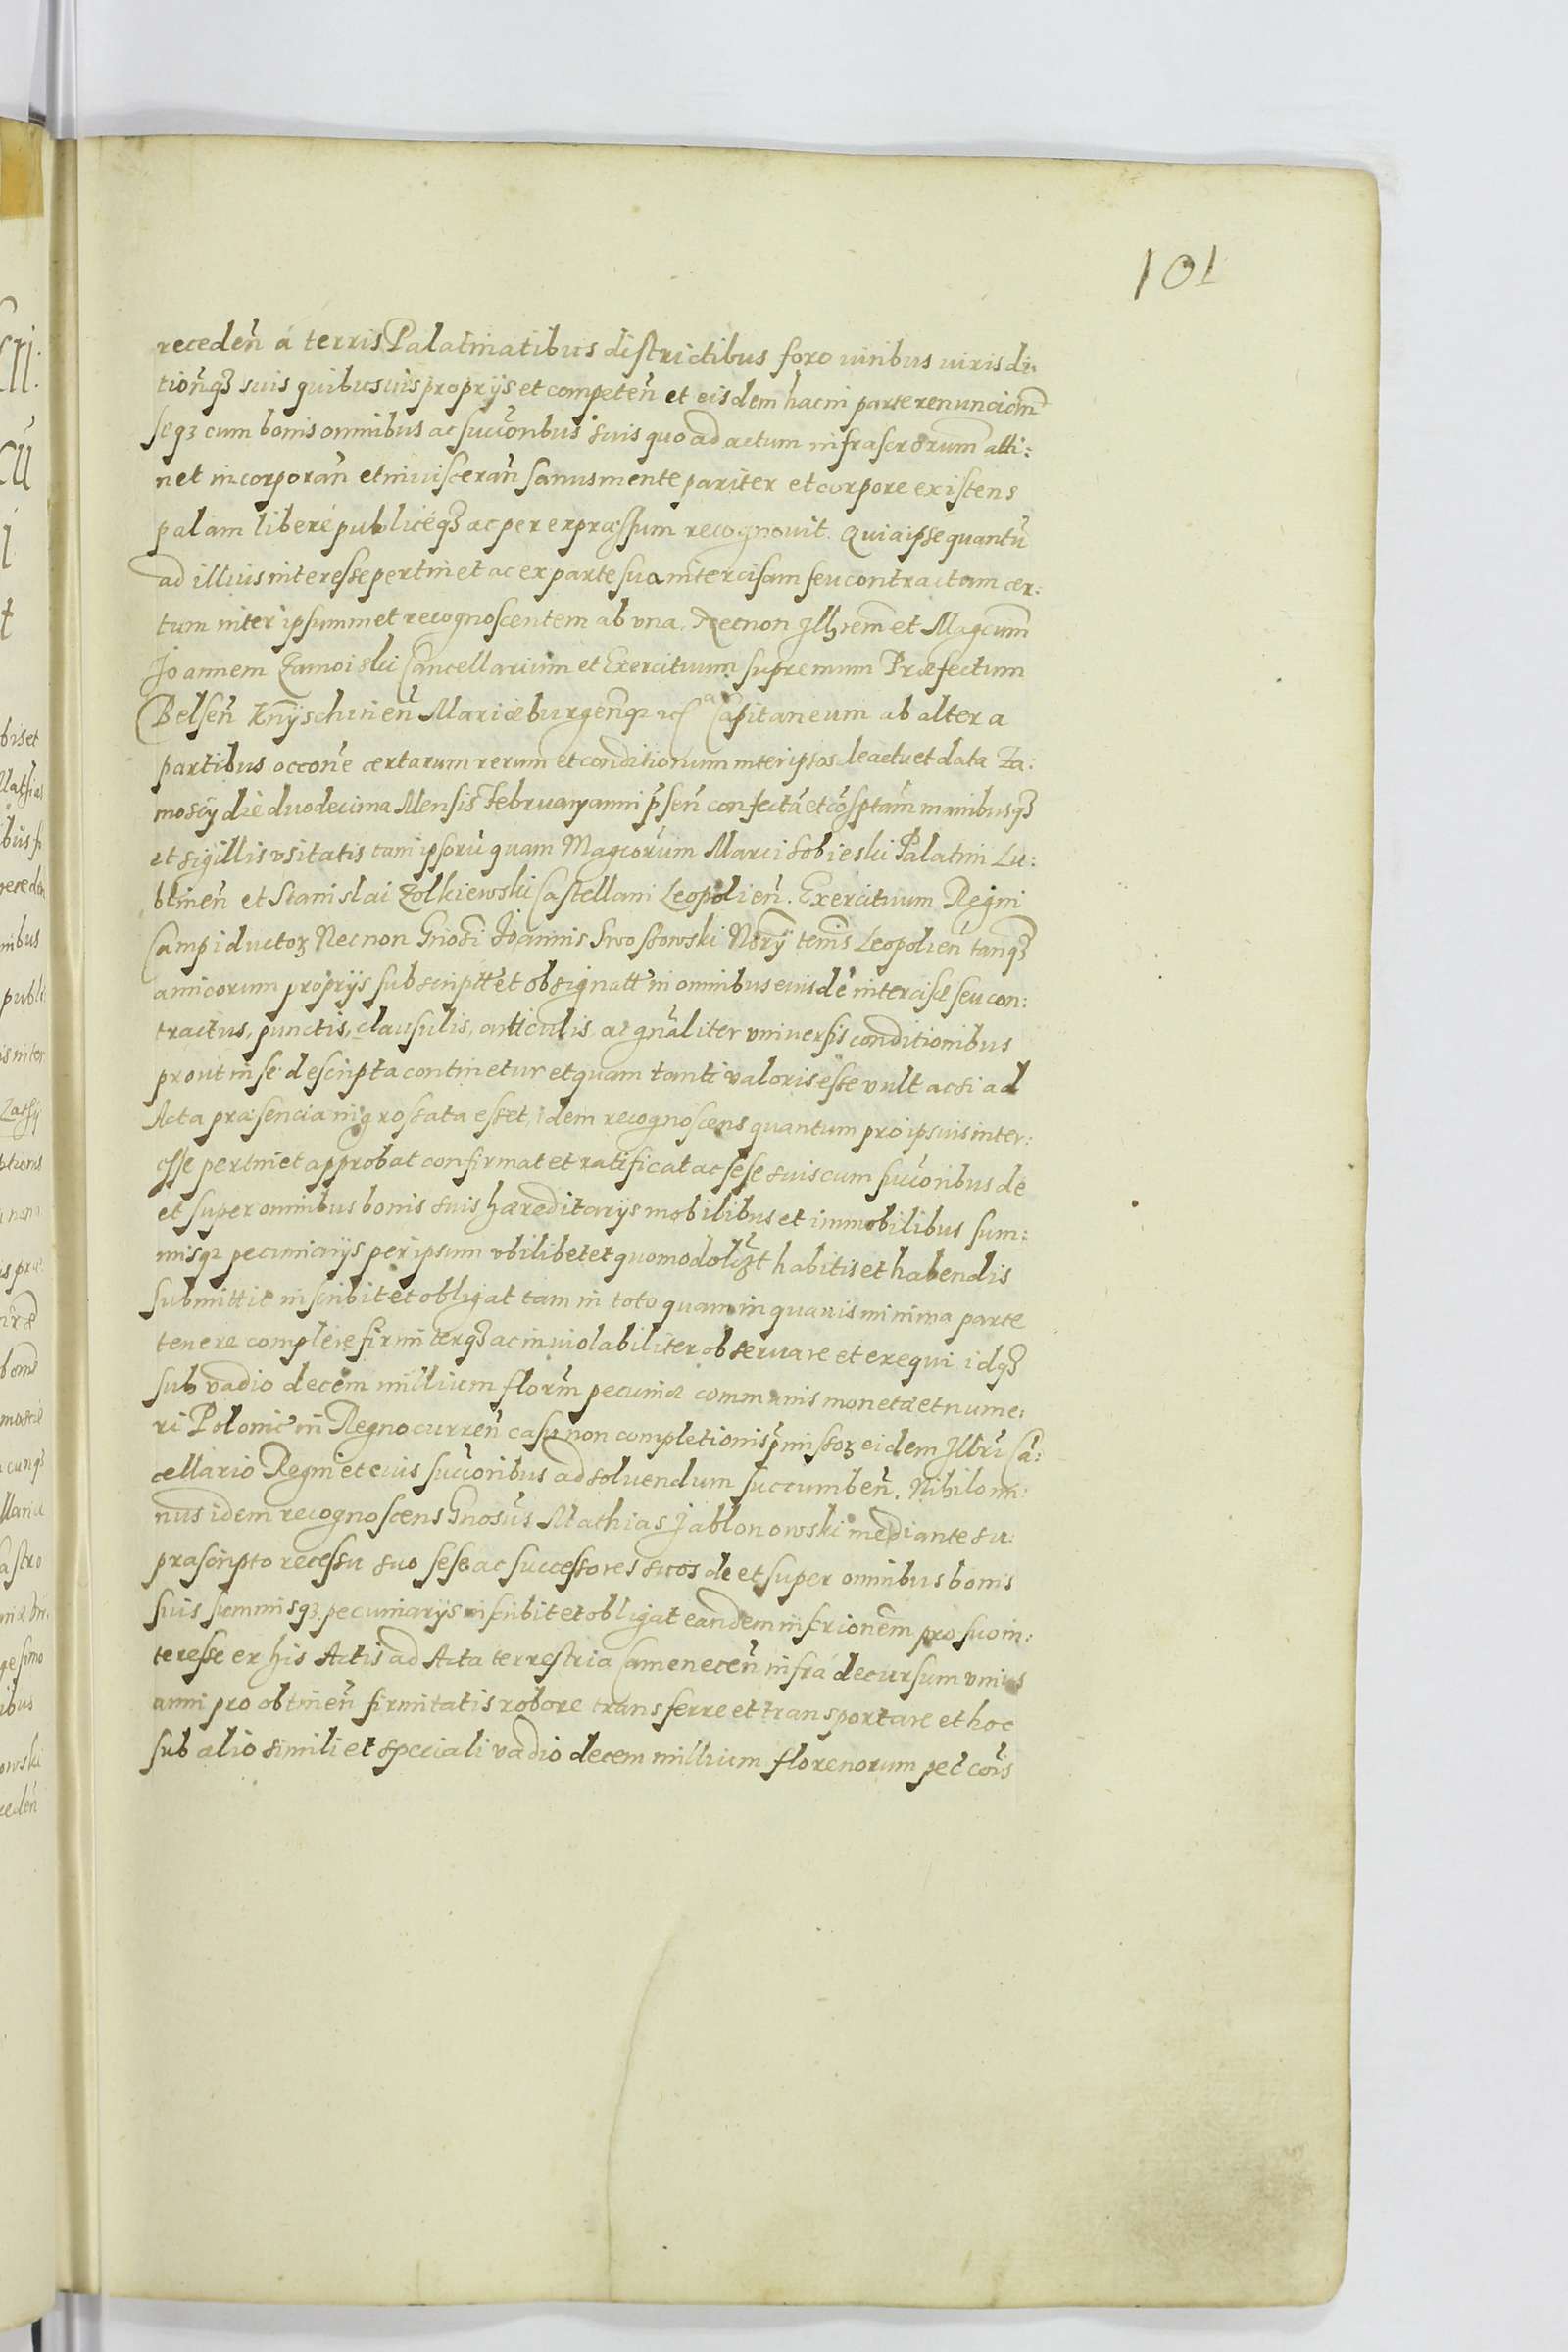 101
receden̄ á terris Palatinatibus districtibus foro iuribus iurisdi,
tionq3 suis quibusuis proprijs et competen̄ et eisdem hac in parte renuncian̄
seq3 cum bonis omnibus ac succoribus suis quo ad actum infrascrorum atti:
net incorporan̄ et inuisceran̄ sanus mente pariter et corpore existens
palam liberé publiceq3 ac per expressum recognouit. Quia ipse quantū
ad illius interesse pertinet ac ex parte sua intercisam seu contractum cer:
tum inter ipsummet recognoscentem ab vna. Necnon Jllrem et Magcum
Joannem Zamoiski Cancellarium et Exercituum supremum Præfectum
Belsen̄ Knyschinen̄ Mariæburgenq3 Capitaneum ab altera
partibus occone certarum rerum et conditionum inter ipsos de actu et data Za:
moscij die duodecima Mensis February anni p̄sen̄ confectā et cōsptām manibusq3
et sigillis vsitatis tam ipsorū quam Magcorum Marci Sobieski Palatini Lu:
blinen̄ et Stanislai Zolkiewski Castellani Leopolien̄. Exercituum Regni
Campiductor3 Necnon Gnosi Joannis Swoszowski Nōrij terris Leopolien̄ tanq3
amicorum proprijs subscriptt et obsignatt in omnibus euisdē intercisæ seu con:
tractus, punctis, clausulis, articulis, ac gnāliter vniversis conditionibus
prout in se descripta continetur et quam tanti valoris esse vult ac si ad
Acta præsencia nigrossata esset, idem recognoscens quantum pro ipsuis inter:
esse pertinet approbat confirmat et ratificat ac sese suis cum succoribus de
et super omnibus bonis suis hæreditarijs mobilibus et immobilibus sum:
misq3 pecuniarijs per ipsum vbilibet et quomodolz̄t habitis et habendis
submittit inscribit et obligat tam in toto quam in quauis minima parte
tenere complere firmiterq3 ac inuiolabiliter obseruare et exequi idq3
sub vadio decem millium florīn pecuniæ communis monetæ et nume:
ri Polonic̄ in Regno curren̄ casu non completionis p̄missor3 eidem Jllri Cā:
cellario Regni et eius succoribus ad soluendum succumben̄. Nihilomi:
nus idem recognoscens Gnosus Mathias Jablonowski mediante su:
prascripto recessu suo sese ac successores suos de et super omnibus bonis
suis summisq3 pecuniarijs inscribit et obligat eandem inscrionem pro suo in:
teresse ex his Actis ad Acta terrestria Camenecen̄ infrá decursum vnius
anni pro obtinen̄ firmitatis robore transferre et transportare et hoc
sub alio simili et speciali vadio decem millium florenorum pec̄ cōis